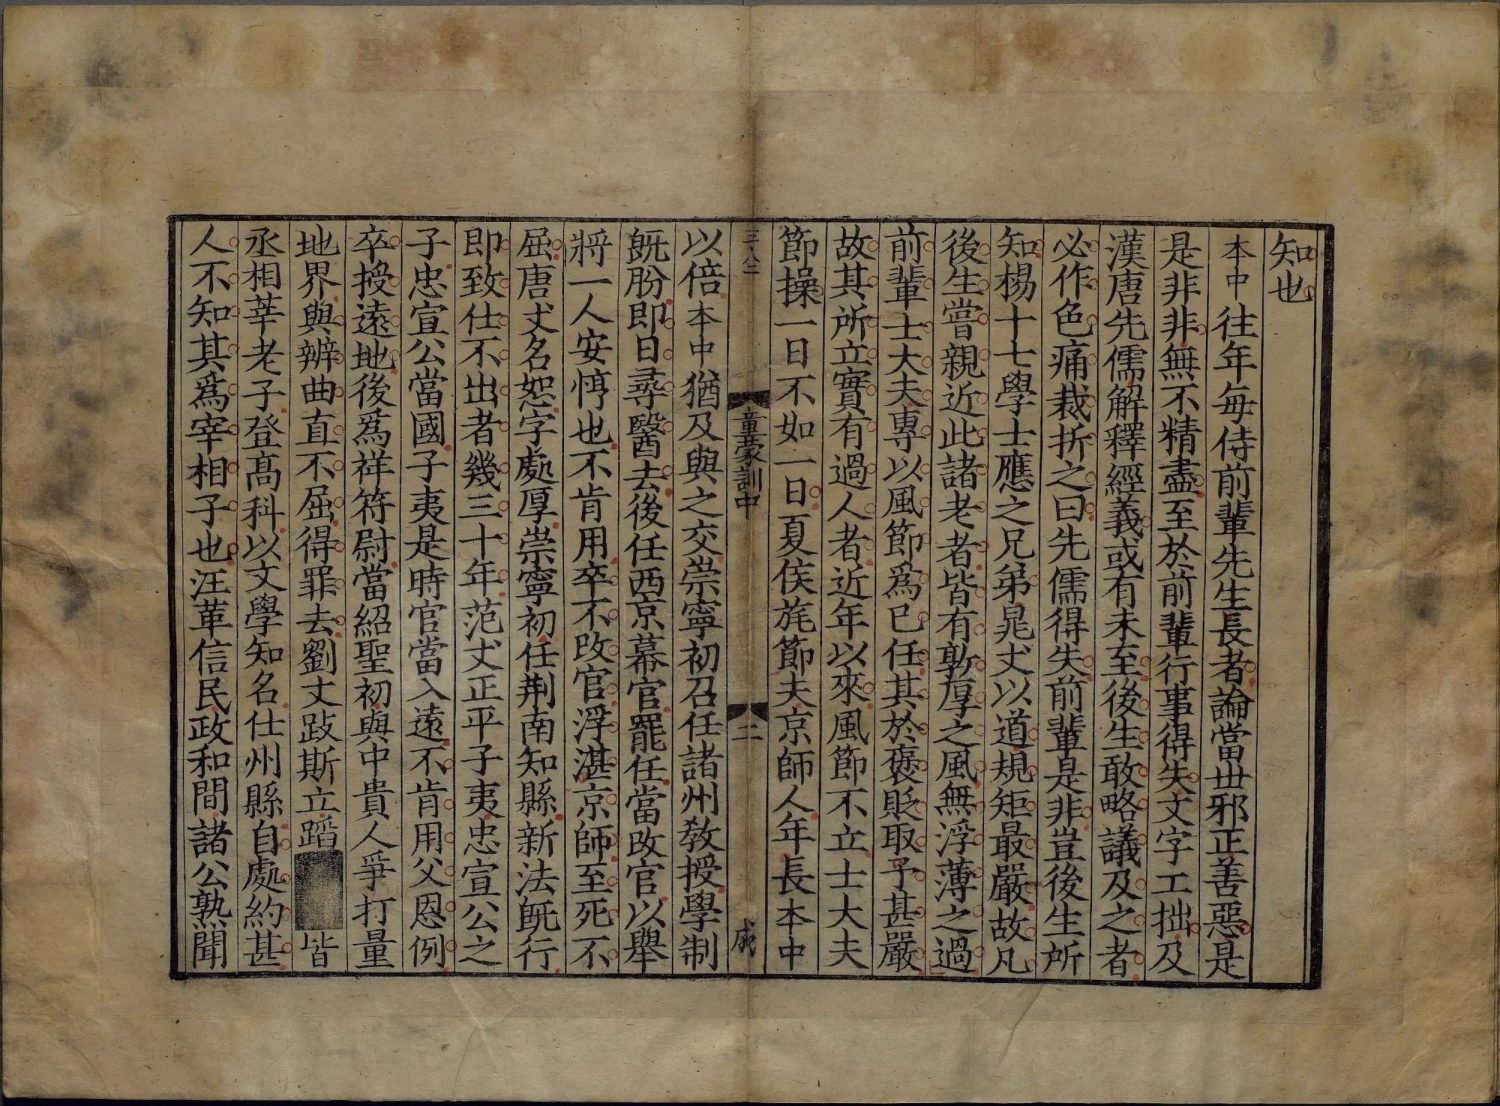 知也
本中往年每侍前輩先生長者論當世邪正善惡是
是非非無不精盡至於前輩行事得失文字工拙及
漢唐先儒解釋經義或有未至後生敢略議及之者
必作色痛裁折之曰先儒得失前輩是非豈後生所
知楊十七學士應之兄弟晁丈以道規矩最嚴故凡
後生嘗親近此諸老者皆有敦厚之風無浮薄之過
前輩士大夫專以風節爲己任其於褒貶取予甚嚴
故其所立實有過人者近年以來風節不立士大夫
節操一日不如一日夏侯旄節夫京師人年長本中
童蒙訓中
二
成
以倍本中猶及與之交崇寧初召任諸州教授學制
既朌即日尋醫去後任西京幕官罷任當改官以舉
將一人安惇也不肯用卒不改官浮湛京師至死不
屈唐丈名恕字處厚崇寧初任荆南知縣新法既行
即致仕不出者幾三十年范丈正平子夷忠宣公之
子忠宣公當國子夷是時官當入遠不肯用父恩例
卒授遠地後爲祥符尉當紹聖初與中貴人爭打量
地界與辨曲直不屈得罪去劉丈跂斯立蹈皆
丞相莘老子登高科以文學知名仕州縣自處約甚
人不知其爲宰相子也汪革信民政和間諸公熟聞